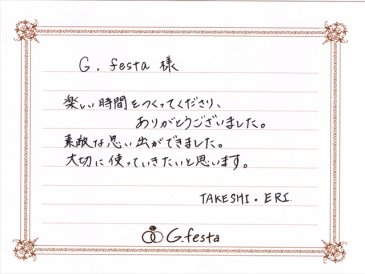 G. festa 様
楽しい時間をつくってくださり、
ありがとうございました。
素敵な思い出ができました。
大切に使っていきたいと思います。
TAKESHI・ERI
G.festa